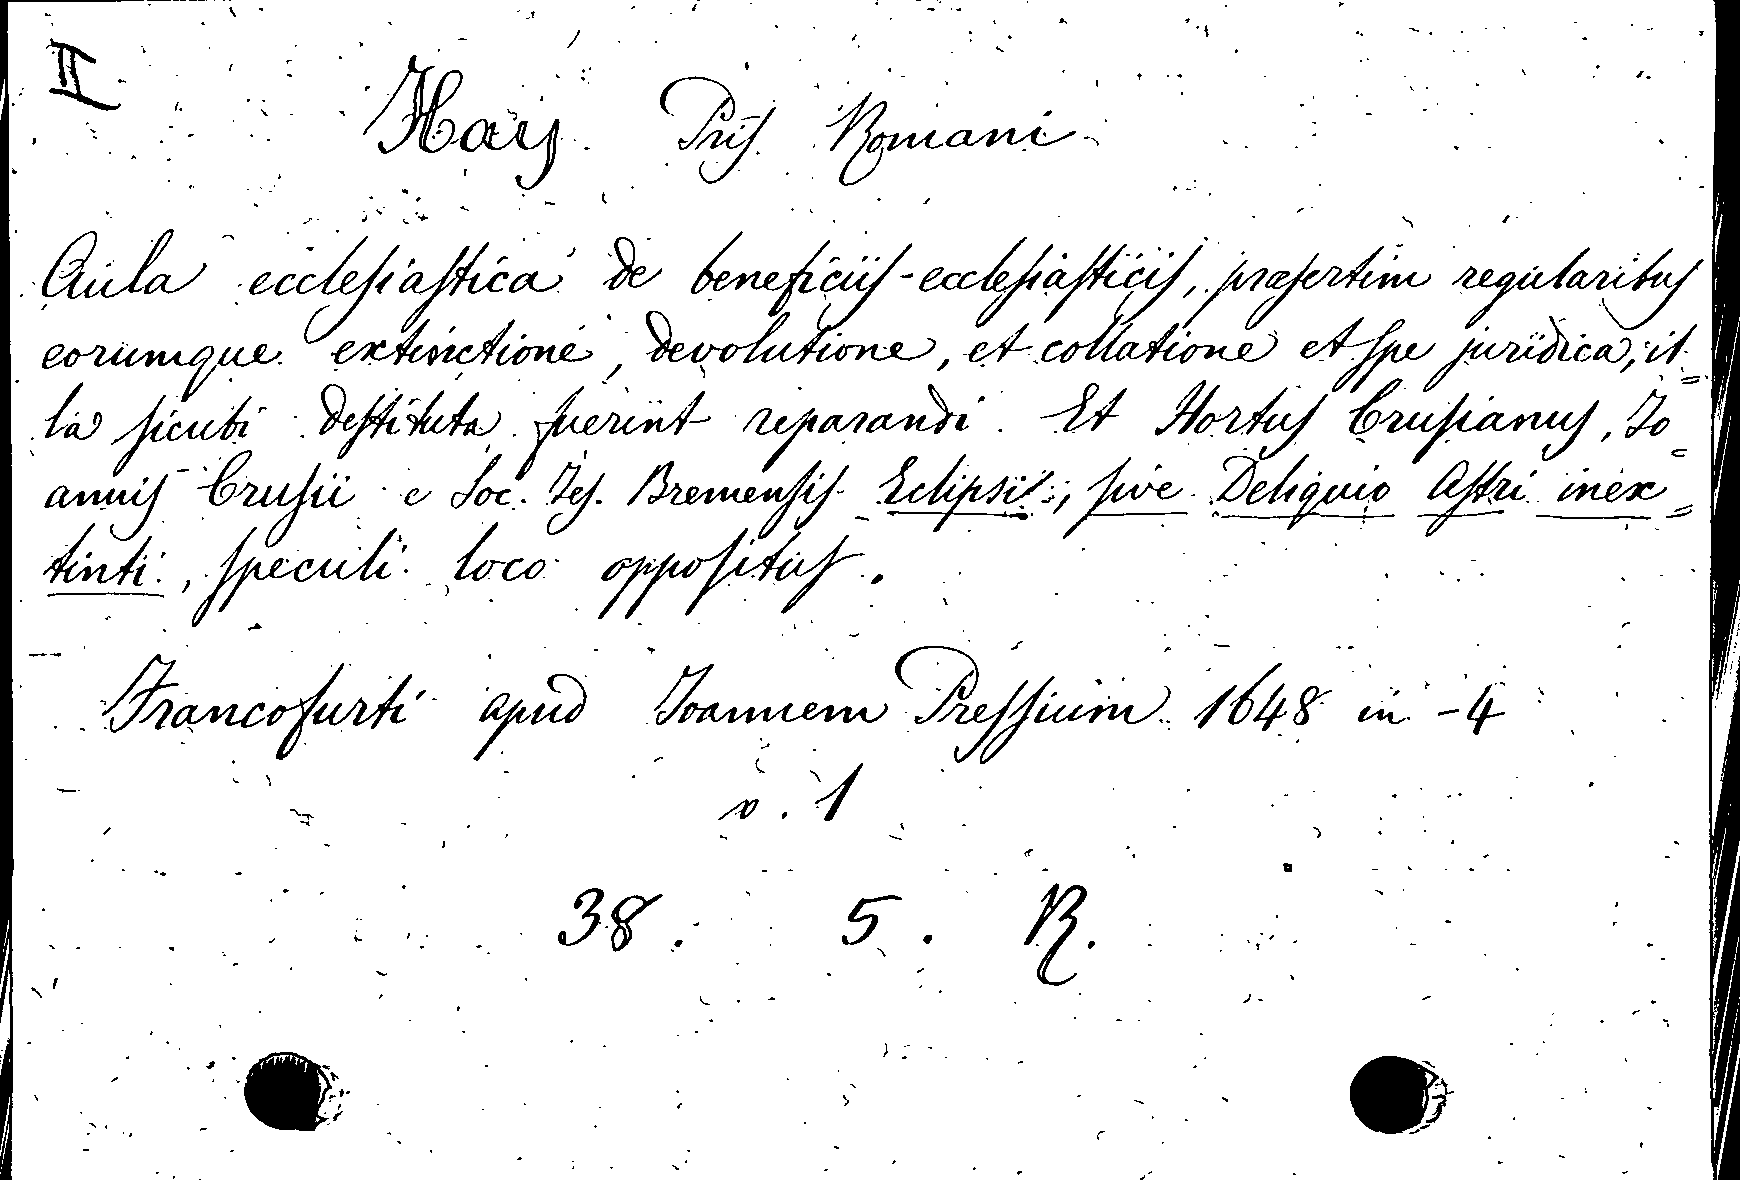 II
Hay Pris Romani
Aula ecclesiastica de beneficiis-ecclesiasticis, præsertim regularibus
eorumque extinctione, devolutione, et collatione et spe juridica, il=
la sicubi destituta fuerint reparandi. Et Hortus Crusianus, Jo=
annis Crusii e Soc. Jes. Bremensis Eclipsis, sive Deliquio Astri inex=
tinti, speculi loco oppositus.
Francofurti apud Joannem Pressium 1648 in -4
v. 1
38. 5. R.